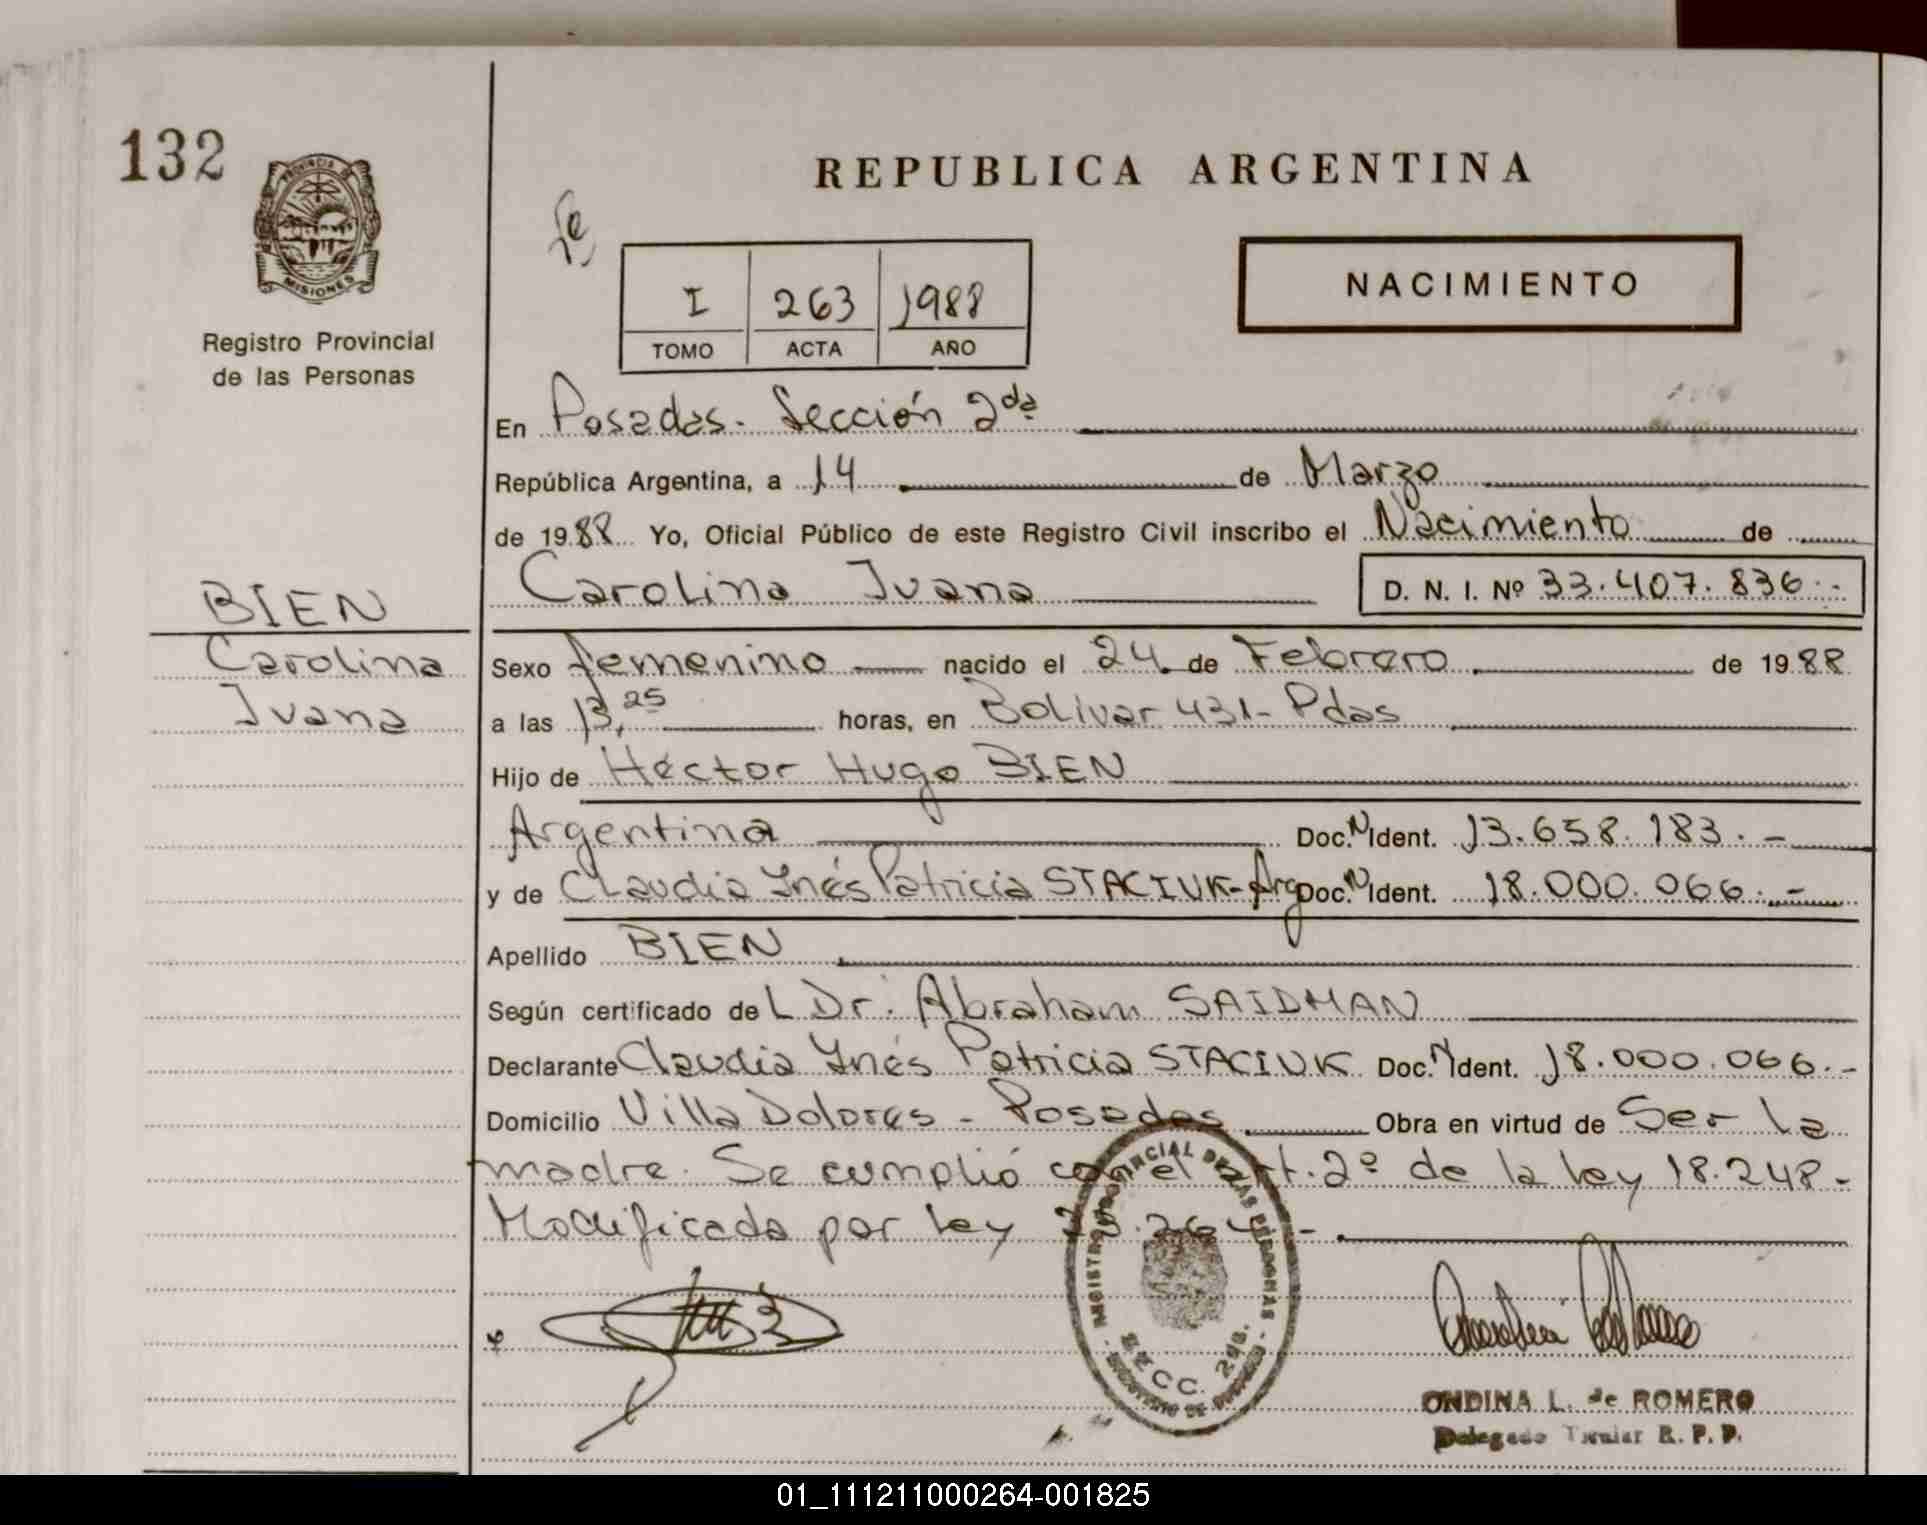 132
PROVINCIA DE
MISIONES
Registro Provincial
de las Personas
REPUBLICA ARGENTINA
NACIMIENTO
I 263 1988
TOMO ACTA AÑO
En Posadas. Sección 2da
República Argentina, a 14 de Marzo
de 1988 Yo, Oficial Público de este Registro Civil inscribo el Nacimiento de
Carolina Ivana D. N. I. Nº 33.407.836.-
BIEN
Carolina
Ivana
Sexo femenino nacido el 24 de Febrero de 1988
a las 13,25 horas, en Bolivar 431- Pdas
Hijo de Héctor Hugo BIEN
Argentina Doc. N Ident. 13.658.183.-
y de Claudia Inés Patricia STACIUK-Arg Doc. N Ident. 18.000.066.-
Apellido BIEN
Según certificado del Dr. Abraham SAIDMAN
Declarante Claudia Inés Patricia STACIUK Doc. N Ident. 18.000.066.-
Domicilio Villa Dolores - Posadas Obra en virtud de Ser la
madre. Se cumplió con el art. 2º de la ley 18.248-
Modificada por ley
SECC.
ONDINA L. de ROMERO
Delegado Titular R. P. P.
01_111211000264-001825